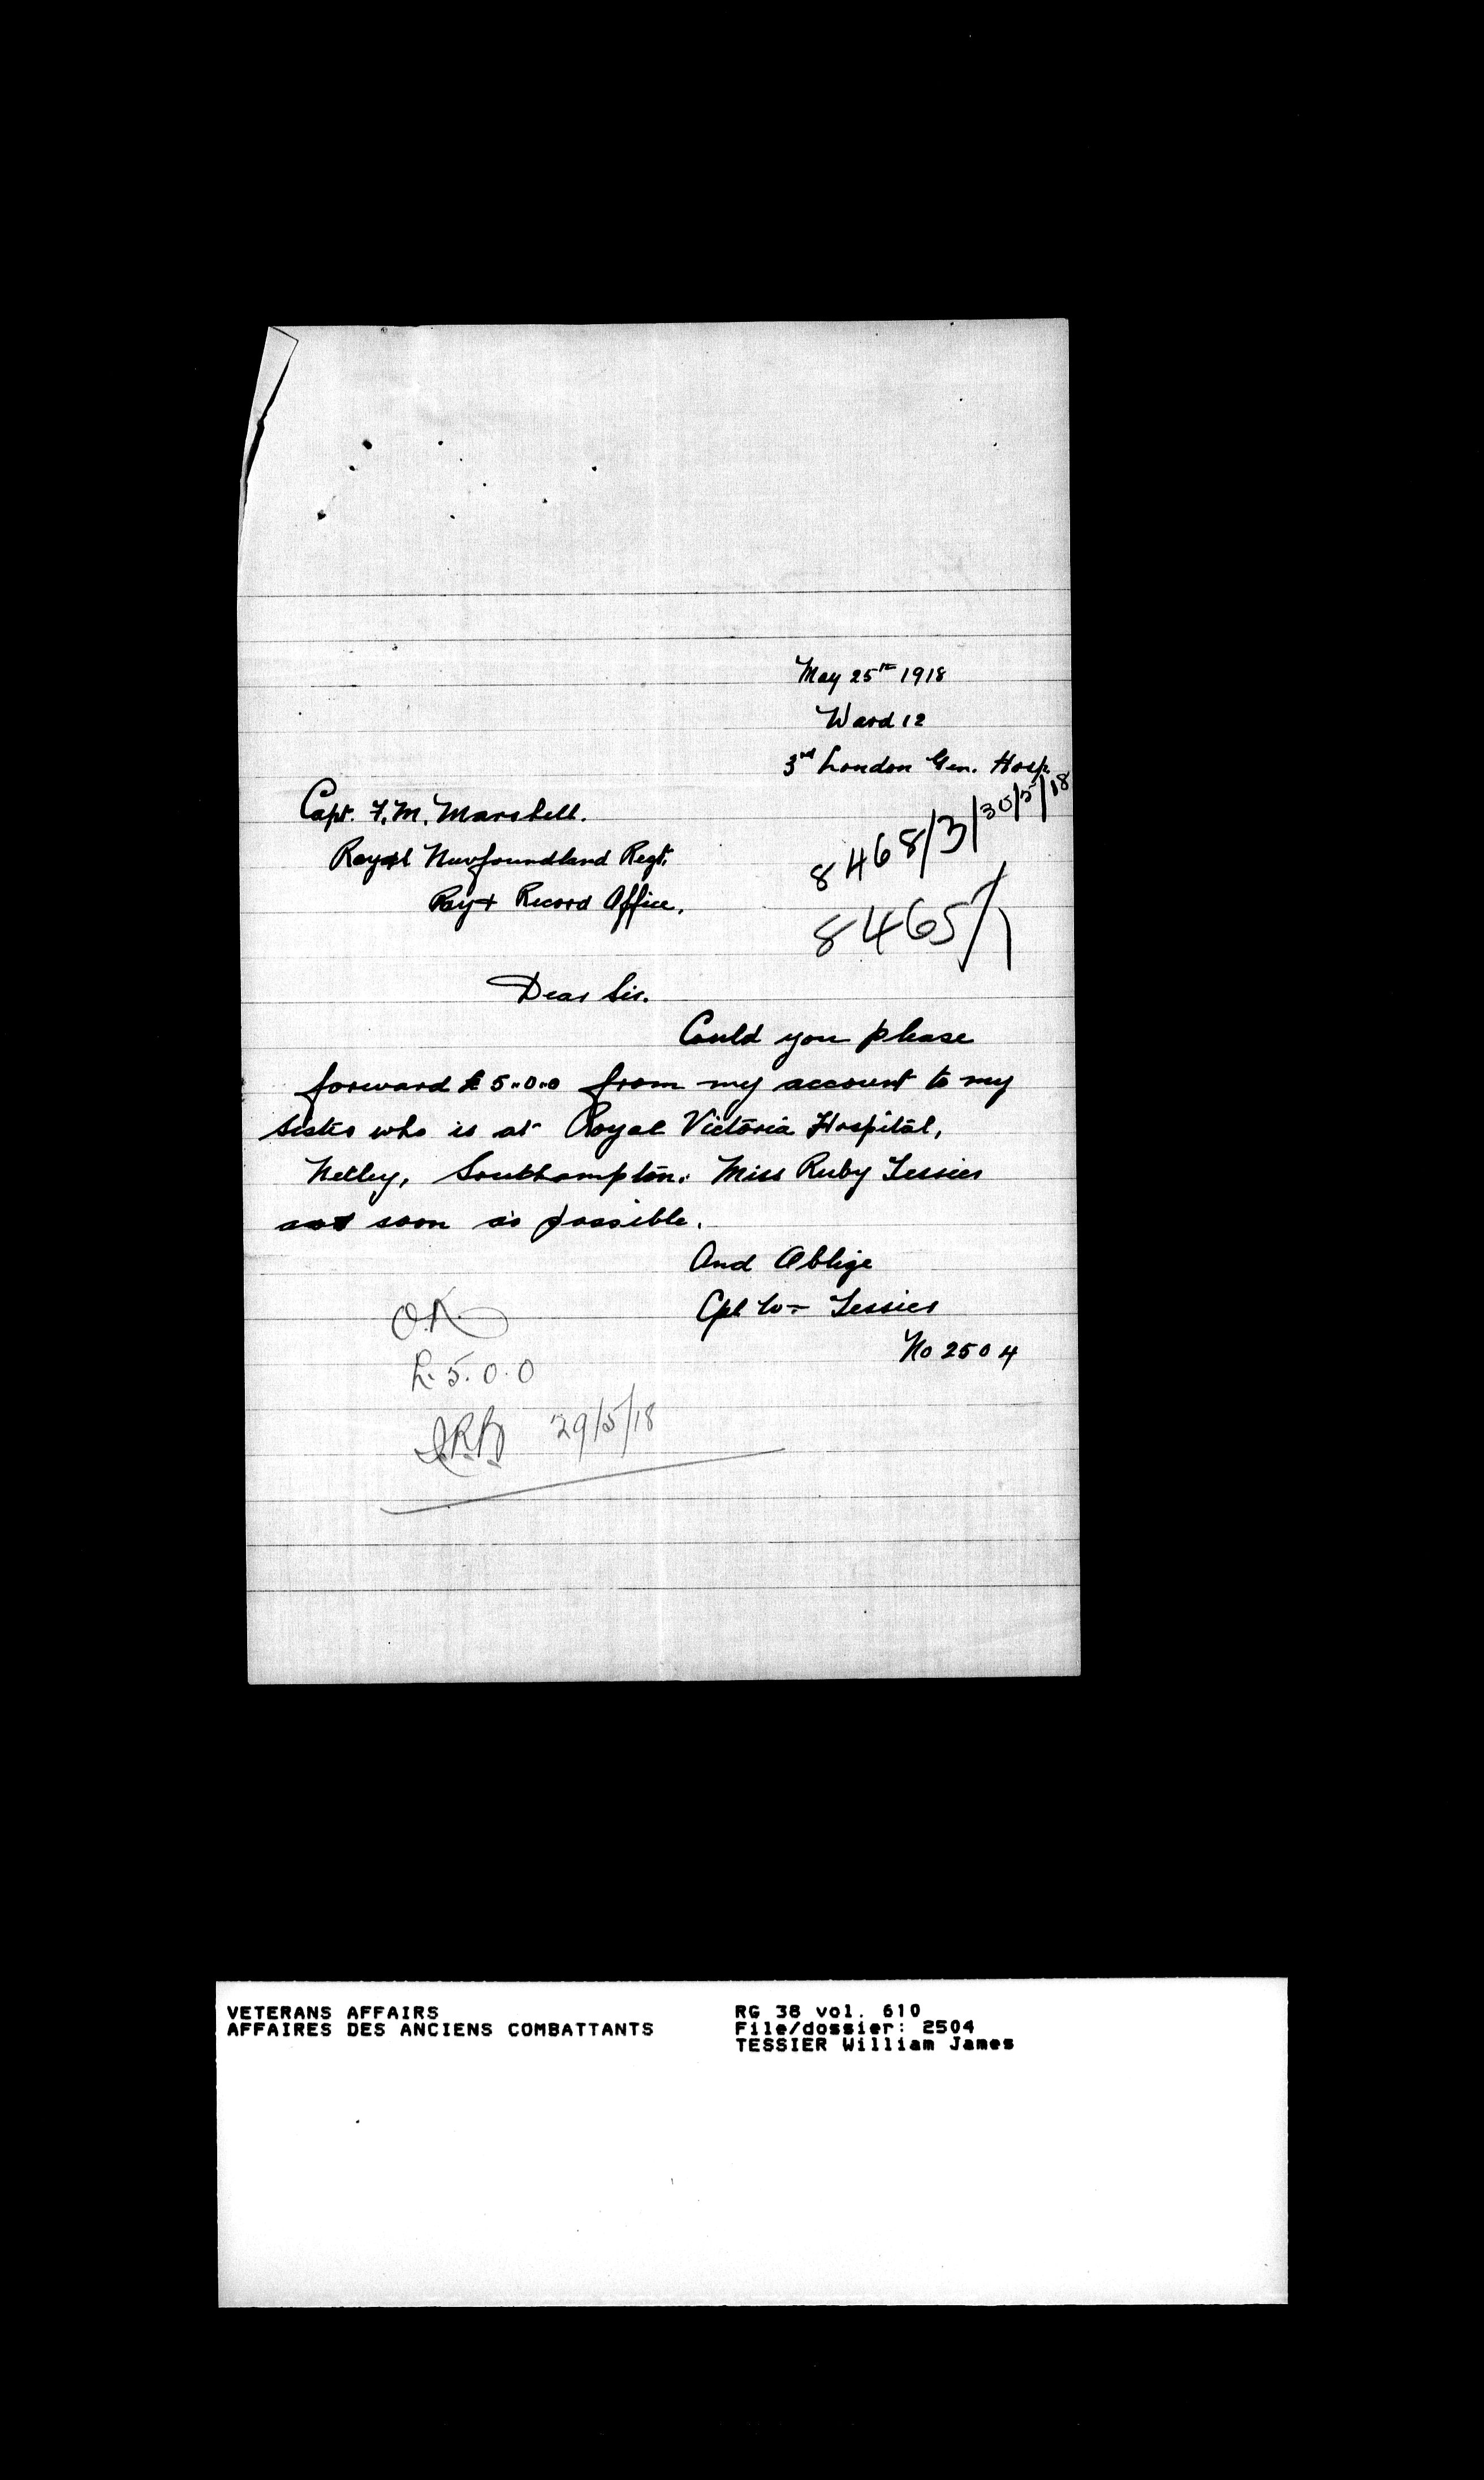 May 25th 1918
Ward 12
3rd London Gen. Hosp.
Capt. F. M. Marshall.
Royal Newfoundland Regt.
Pay & Record Office.
8468/3/30/5/18
8465/1
Dear Sir.
Could you please
forward £5..0..0 from my account to my
sister who is at Royal Victoria Hospital,
Netley, Southampton. Miss Ruby Tessier
as soon as possible.
And Oblige
Cpl W- Tessier
No 2504
O.K.
£.5.0.0
29/5/18
VETERANS AFFAIRS
AFFAIRES DES ANCIENS COMBATTANTS
RG 38 vol. 610
File/dossier: 2504
TESSIER William James